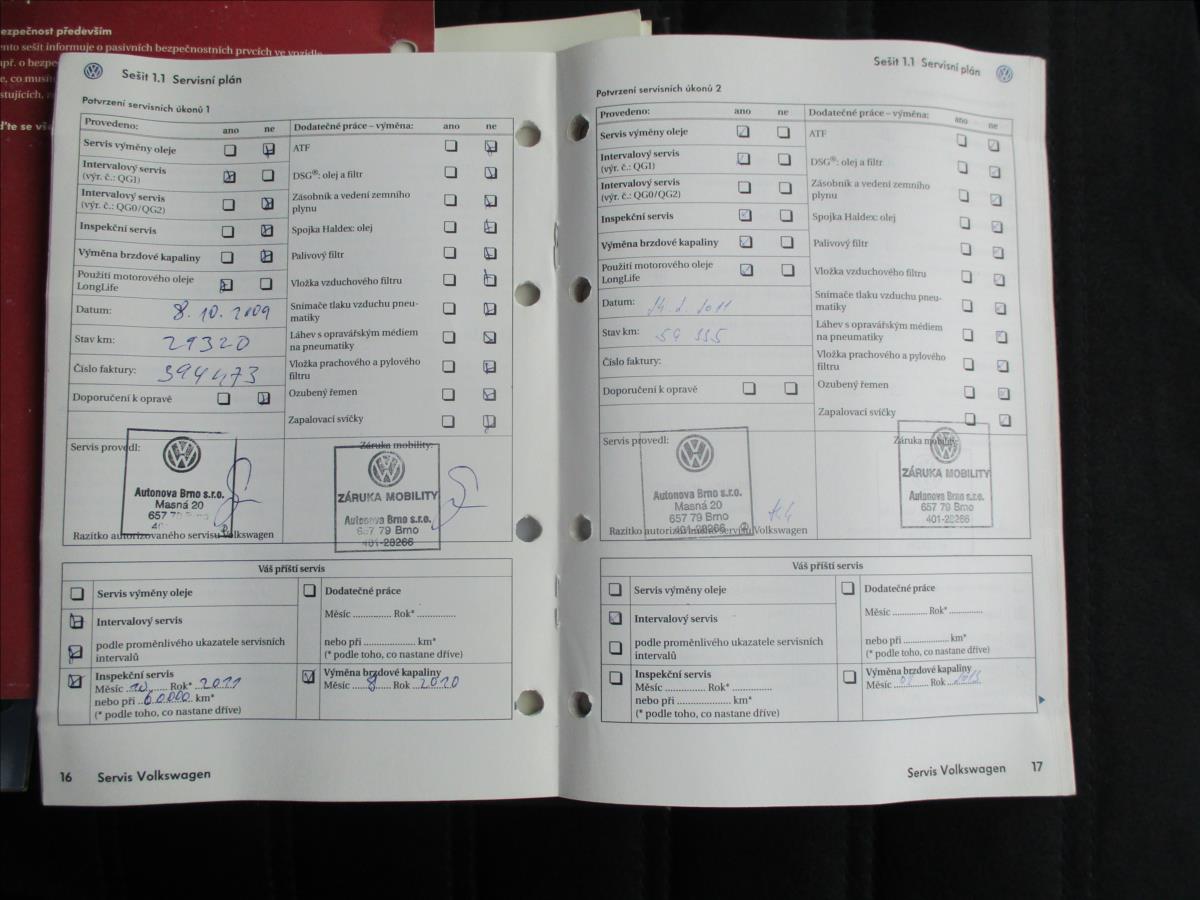 ezpečnost především
ento sešit informuje o pasivních bezpečnostních prvcích ve vozidle
apř. o bezpe
e, co musít
stujících, z
ďte se vše
Sešit 1.1 Servisní plán
Potvrzení servisních úkonů 1
Provedeno: ano ne Dodatečné práce – výměna: ano ne
Servis výměny oleje
ATF
Intervalový servis
(výr. č.: QG1)
DSG®: olej a filtr
Intervalový servis
(výr. č.: QG0/QG2)
Zásobník a vedení zemního
plynu
Inspekční servis
Spojka Haldex: olej
Výměna brzdové kapaliny
Palivový filtr
Použití motorového oleje
LongLife
Vložka vzduchového filtru
Datum: 8. 10. 2009
Snímače tlaku vzduchu pneu-
matiky
Stav km: 29320
Láhev s opravářským médiem
na pneumatiky
Číslo faktury: 394473
Vložka prachového a pylového
filtru
Doporučení k opravě
Ozubený řemen
Zapalovací svíčky
Servis provedl:
Autonova Brno s.r.o.
Masná 20
657 79 Brno
Razítko autorizovaného servisu Volkswagen
Záruka mobility:
ZÁRUKA MOBILITY
Autonova Brno s.r.o.
657 79 Brno
401-28266
Váš příští servis
Servis výměny oleje
Intervalový servis
podle proměnlivého ukazatele servisních
intervalů
Inspekční servis
Měsíc 10 Rok* 2011
nebo při 60000 km*
(* podle toho, co nastane dříve)
Dodatečné práce
Měsíc ............... Rok* ...............
nebo při .................... km*
(* podle toho, co nastane dříve)
Výměna brzdové kapaliny
Měsíc 8 Rok 2010
16 Servis Volkswagen
Sešit 1.1 Servisní plán
Potvrzení servisních úkonů 2
Provedeno: ano ne Dodatečné práce – výměna: ano ne
Servis výměny oleje
ATF
Intervalový servis
(výr. č.: QG1)
DSG®: olej a filtr
Intervalový servis
(výr. č.: QG0/QG2)
Zásobník a vedení zemního
plynu
Inspekční servis
Spojka Haldex: olej
Výměna brzdové kapaliny
Palivový filtr
Použití motorového oleje
LongLife
Vložka vzduchového filtru
Datum:
Snímače tlaku vzduchu pneu-
matiky
Stav km:
Láhev s opravářským médiem
na pneumatiky
Číslo faktury:
Vložka prachového a pylového
filtru
Doporučení k opravě
Ozubený řemen
Zapalovací svíčky
Servis provedl:
Autonova Brno s.r.o.
Masná 20
657 79 Brno
401-28266
Razítko autorizovaného servisu Volkswagen
Záruka mobility:
ZÁRUKA MOBILITY
Autonova Brno s.r.o.
657 79 Brno
401-28266
Váš příští servis
Servis výměny oleje
Intervalový servis
podle proměnlivého ukazatele servisních
intervalů
Inspekční servis
Měsíc ............... Rok* ...............
nebo při .................... km*
(* podle toho, co nastane dříve)
Dodatečné práce
Měsíc ............... Rok* ...............
nebo při .................... km*
(* podle toho, co nastane dříve)
Výměna brzdové kapaliny
Měsíc Rok
Servis Volkswagen 17